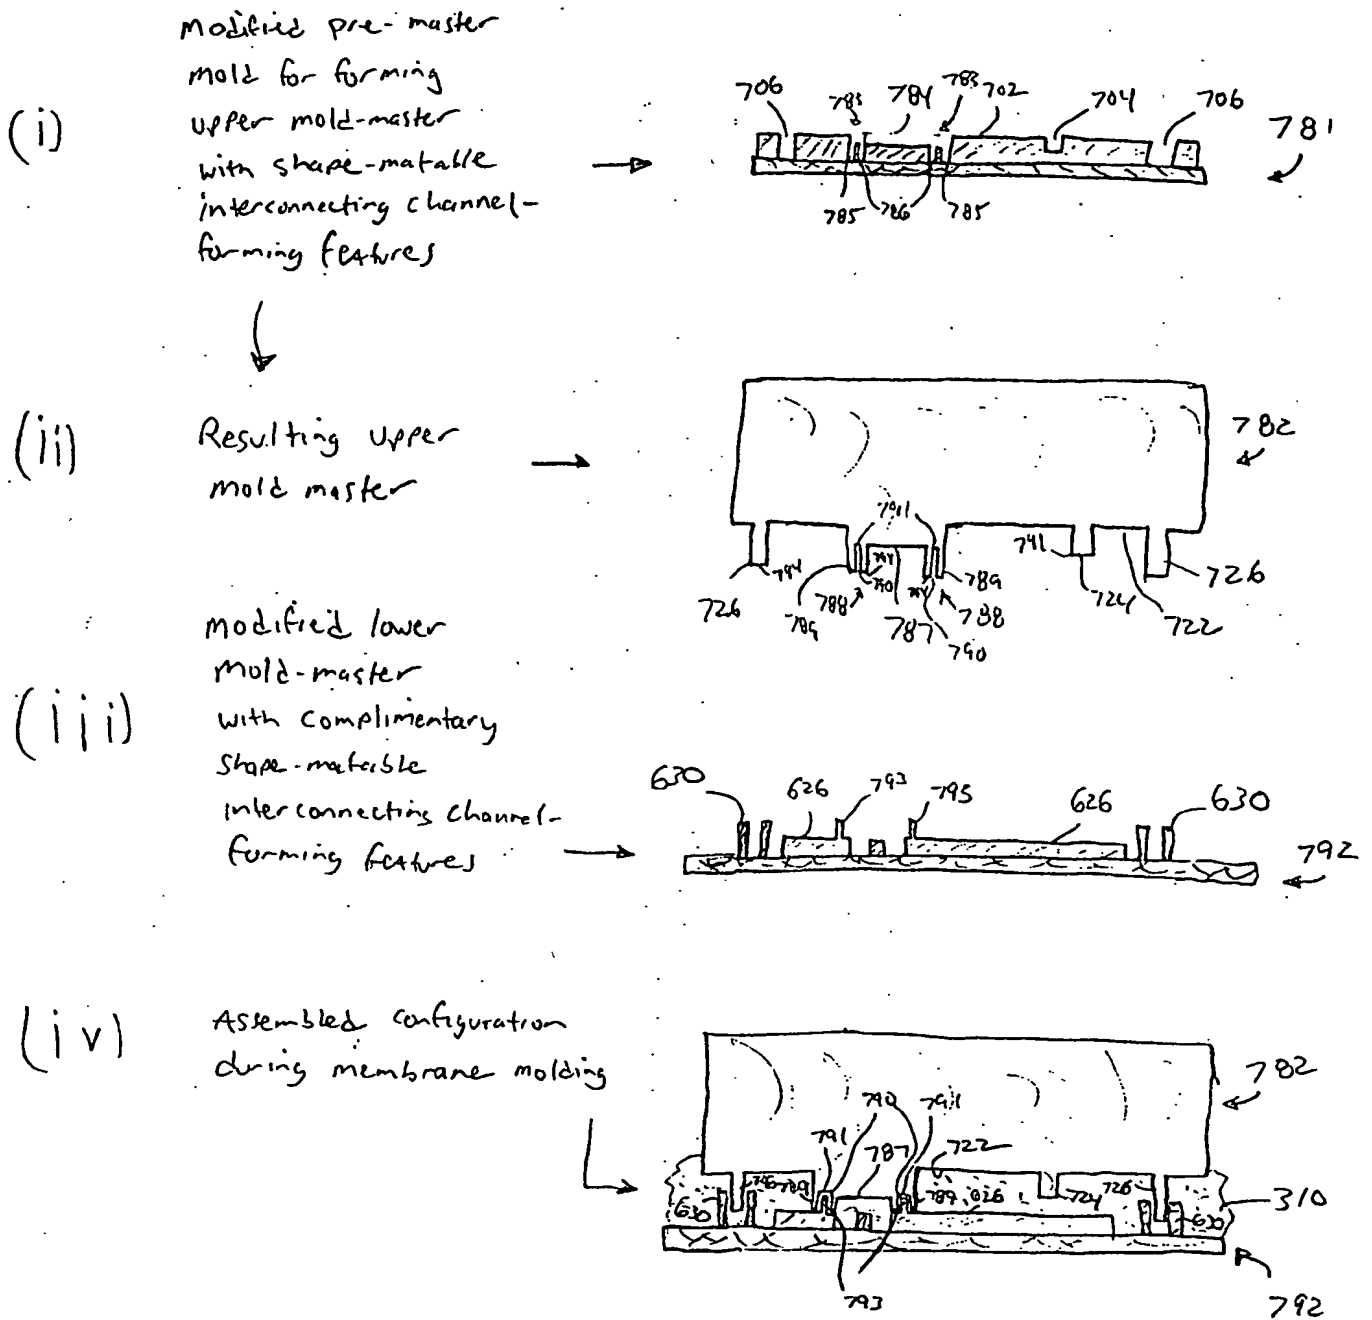 (i)
Modified pre-master
mold for forming
upper mold-master
with shape-matable
interconnecting channel-
forming features
706
783
784
783
702
704
706
781
785
786
785
(ii)
Resulting upper
mold master
782
791
741
726
794
789
788
794
790
787
794
789
788
790
724
722
726
(iii)
Modified lower
mold-master
with complimentary
shape-matable
interconnecting channel-
forming features
630
626
793
793
626
630
792
(iv)
Assembled configuration
during membrane molding
782
790
791
791
787
722
630
726
789
789
626
724
726
630
310
793
792